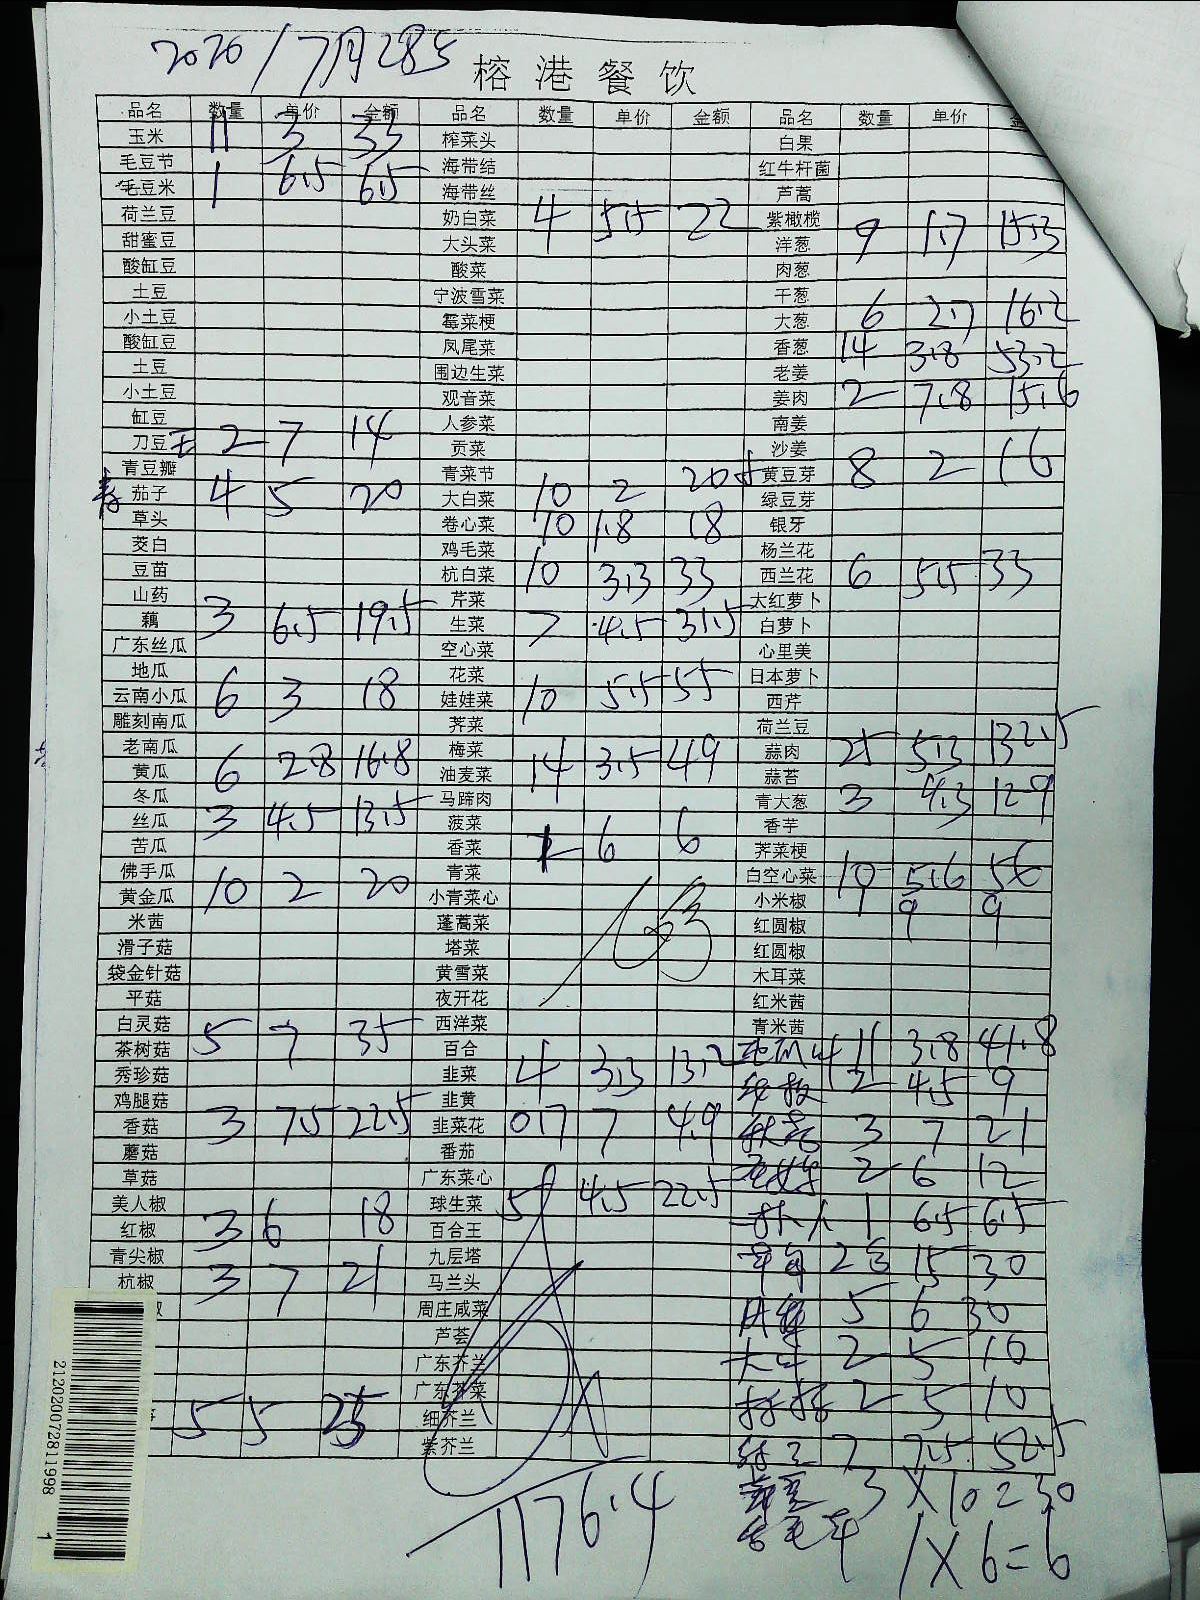 2020/7月28号
榕港餐饮
品名 数量 单价 金额 品名 数量 单价 金额 品名 数量 单价
玉米 11 3 33 榨菜头 白果
毛豆节 海带结 红牛杆菌
毛豆米 1 6.5 6.5 海带丝 芦蒿
荷兰豆 奶白菜 4 5.5 22 紫橄榄
甜蜜豆 大头菜 洋葱 9 1.7 15.3
酸缸豆 酸菜 肉葱
土豆 宁波雪菜 干葱
小土豆 霉菜梗 大葱 6 2.7 16.2
酸缸豆 凤尾菜 香葱 14 3.8 53.2
土豆 围边生菜 老姜
小土豆 观音菜 姜肉 2 7.8 15.6
缸豆 人参菜 南姜
刀豆 2 7 14 贡菜 沙姜
青豆瓣 青菜节 黄豆芽 8 2 16
茄子 4 5 20 大白菜 10 2 20 绿豆芽
草头 卷心菜 10 1.8 18 银牙
茭白 鸡毛菜 杨兰花
豆苗 杭白菜 10 3.3 33 西兰花 6 5.5 33
山药 芹菜 大红萝卜
藕 3 6.5 19.5 生菜 7 4.5 31.5 白萝卜
广东丝瓜 空心菜 心里美
地瓜 花菜 日本萝卜
云南小瓜 6 3 18 娃娃菜 10 5.5 55 西芹
雕刻南瓜 荠菜 荷兰豆
老南瓜 梅菜 蒜肉 25 5.3 132.5
黄瓜 6 2.8 16.8 油麦菜 14 3.5 49 蒜苔
冬瓜 马蹄肉 青大葱 3 4.3 12.9
丝瓜 3 4.5 13.5 菠菜 香芋
苦瓜 香菜 1 6 6 荠菜梗
佛手瓜 青菜 白空心菜 10 5.6 56
黄金瓜 10 2 20 小青菜心 小米椒 1 9 9
米茜 蓬蒿菜 红圆椒
滑子菇 塔菜 红圆椒
袋金针菇 黄雪菜 木耳菜
平菇 夜开花 红米茜
白灵菇 5 7 35 西洋菜 青米茜
茶树菇 百合 4 3.3 13.2 11 3.8 41.8
秀珍菇 韭菜 2 4.5 9
鸡腿菇 韭黄
香菇 3 7.5 22.5 韭菜花 0.7 7 4.9 3 7 21
蘑菇 番茄
草菇 广东菜心 2 6 12
美人椒 球生菜 5 4.5 22.5 1 6.5 6.5
红椒 3 6 18 百合王
青尖椒 九层塔 2 15 30
杭椒 3 7 21 马兰头
椒 周庄咸菜 5 6 30
芦荟
广东芥兰 2 5 10
广东芥菜 2 5 10
5 5 25 细芥兰
紫芥兰 7 7.5 52.5
3 X 10 = 30
1 X 6 = 6
1176.4
212020072811998 1